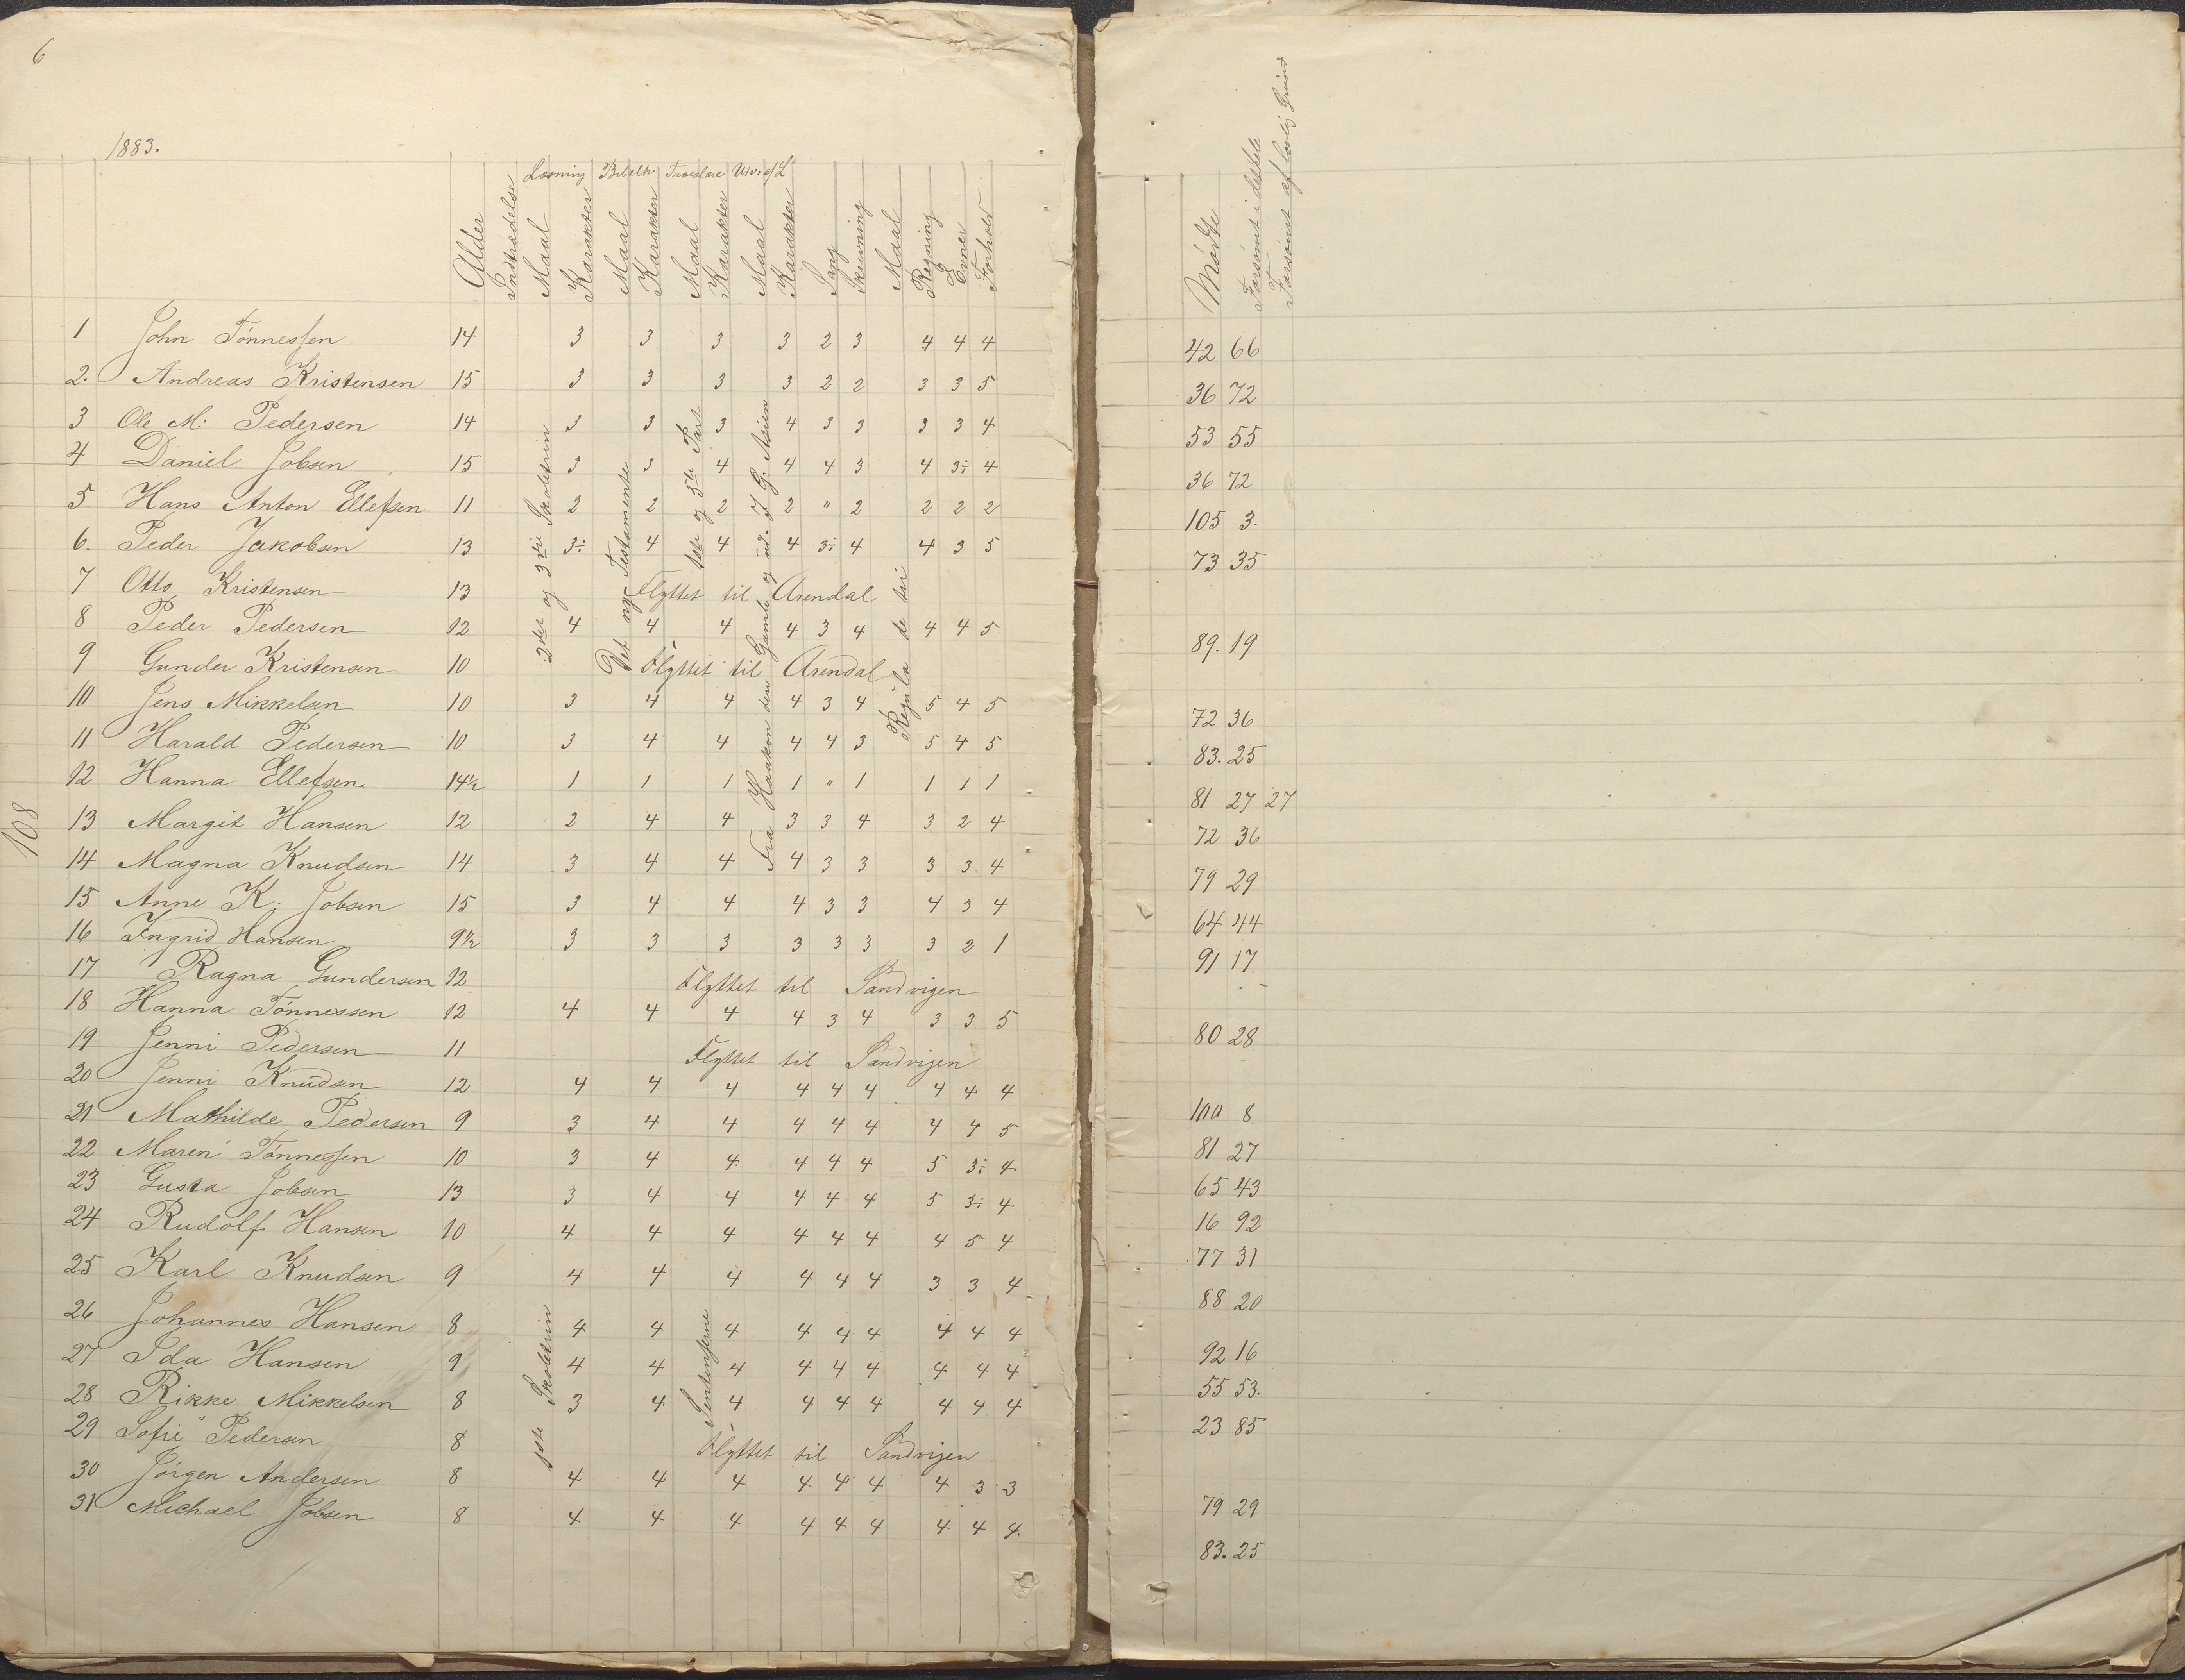 6
1883.
Læsning Bibelh Troeslære Udv: af L
Alder Indtrædelse Maal Karakter Maal Karakter Maal Karakter Maal Karakter Sang Skrivning Maal Regning Evner Forhold
Mødte Forsømt i det hele Forsømt af lovlig Grund
108
1 John Tønnessen 14 3 3 3 3 2 3 4 4 4 42 66
2. Andreas Kristensen 15 3 3 3 3 2 2 3 3 5 36 72
3 Ole M: Pedersen 14 3 3 3 4 3 3 3 3 4 53 55
4 Daniel Jobsen 15 3 3 4 4 4 3 4 3÷ 4 36 72
5 Hans Anton Ellefsen 11 2 2 2 2 " 2 2 2 2 105 3.
6. Peder Jakobsen 13 3÷ 4 4 4 3÷ 4 4 3 5 73 35
7 Otto Kristensen 13 Flyttet til Arendal
8 Peder Pedersen 12 4 4 4 4 3 4 4 4 5 89. 19
9 Gunder Kristensen 10 Flyttet til Arendal
10 Jens Mikkelsen 10 3 4 4 4 3 4 5 4 5 72 36
11 Harald Pedersen 10 3 4 4 4 4 3 5 4 5 83. 25
12 Hanna Ellefsen. 14½ 1 1 1 1 " 1 1 1 1 81 27 27
13 Margit Hansen 12 2 4 4 3 3 4 3 2 4 72 36
14 Magna Knudsen 14 3 4 4 4 3 3 3 3 4 79 29
15 Anne K: Jobsen 15 3 4 4 4 3 3 4 3 4 64 44
16 Ingrid Hansen 9½ 3 3 3 3 3 3 3 2 1 91 17
17 Ragna Gundersen 12 Flyttet til Sandvigen
18 Hanna Tønnessen 12 4 4 4 4 3 4 3 3 5 80 28
19 Jenni Pedersen 11 Flyttet til Sandvigen
20 Jenni Knudsen 12 4 4 4 4 4 4 4 4 4 100 8
21 Mathilde Pedersen 9 3 4 4 4 4 4 4 4 5 81 27
22 Maren Tønnessen 10 3 4 4 4 4 4 5 3÷ 4 65 43
23 Gusta Jobsen 13 3 4 4 4 4 4 5 3÷ 4 16 92
24 Rudolf Hansen 10 4 4 4 4 4 4 4 5 4 77 31
25 Karl Knudsen 9 4 4 4 4 4 4 3 3 4 88 20
26 Johannes Hansen 8 4 4 4 4 4 4 4 4 4 92 16
27 Ida Hansen 9 4 4 4 4 4 4 4 4 4 55 53.
28 Rikke Mikkelsen 8 3 4 4 4 4 4 4 4 4 23 85
29 Sofie Pedersen 8 Flyttet til Sandvigen
30 Jørgen Andersen 8 4 4 4 4 4 4 4 3 3 79 29
31 Michael Jobsen 8 4 4 4 4 4 4 4 4 4. 83. 25
2det og 3die Skoletrin
Det nye Testamente
1ste og 3die Part
Fra Haakon den Gamle og ud. J G: Asien
Regula de tri
1ste Skoletrin
Sentenserne